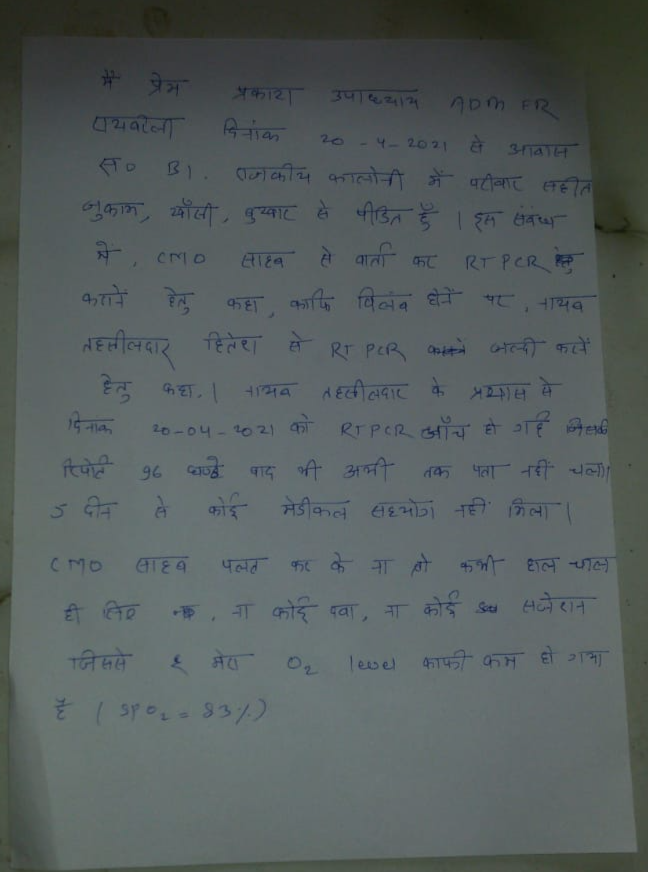 मैं प्रेम प्रकाश उपाध्याय ADM FR
रायबरेली दिनांक 20-4-2021 से आवास
सं० B1, राजकीय कालोनी में परीवार सहीत
जुकाम, खाँसी, बुखार से पीडित हूँ । इस संबंध
में, CMO साहब से वार्ता कर RTPCR
करानें हेतु कहा, काफि विलंब होनें पर, नायब
तहसीलदार हितेश से RTPCR जल्दी करानें
हेतु कहा, । नायब तहसीलदार के प्रयास से
दिनांक 20-04-2021 को RTPCR जाँच हो गई जिसकी
रिपोर्ट 96 घण्टे बाद भी अभी तक पता नहीं चला।
5 दीन से कोई मेडीकल सहयोग नहीं मिला ।
CMO साहब पलट कर के ना तो कभी हाल चाल
ही लिए, ना कोई दवा, ना कोई सजेशन
जिससे मेरा O2 level काफी कम हो गया
है ( SPO2 = 83%)